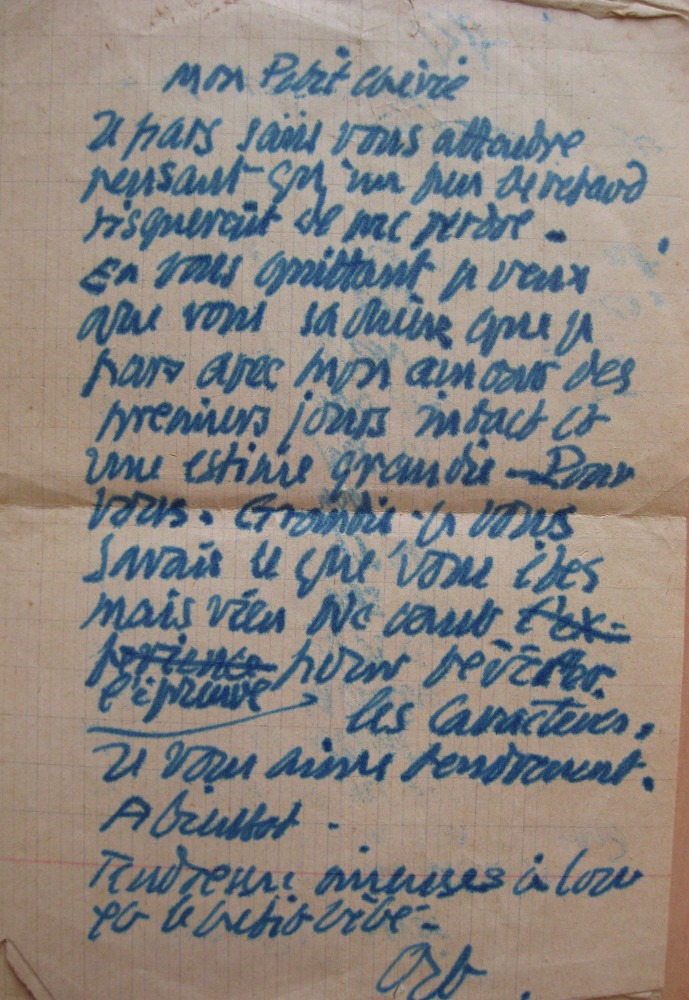 mon Petit chéri
Je pars sans vous attendre
pensant qu'un peu de retard
risquerait de me perdre.
En vous quittant je veux
que vous sachiez que je
pars avec mon amour des
premiers jours intact et
une estime grandie Pour
vous. Grandie. je vous
savais ce que vous êtes
mais rien Ne vaut l'ex-
perience pour révéler
l'épreuve
les caractères.
Je vous aime tendrement.
A bientot.
Tendresses à
et le petit bébé.